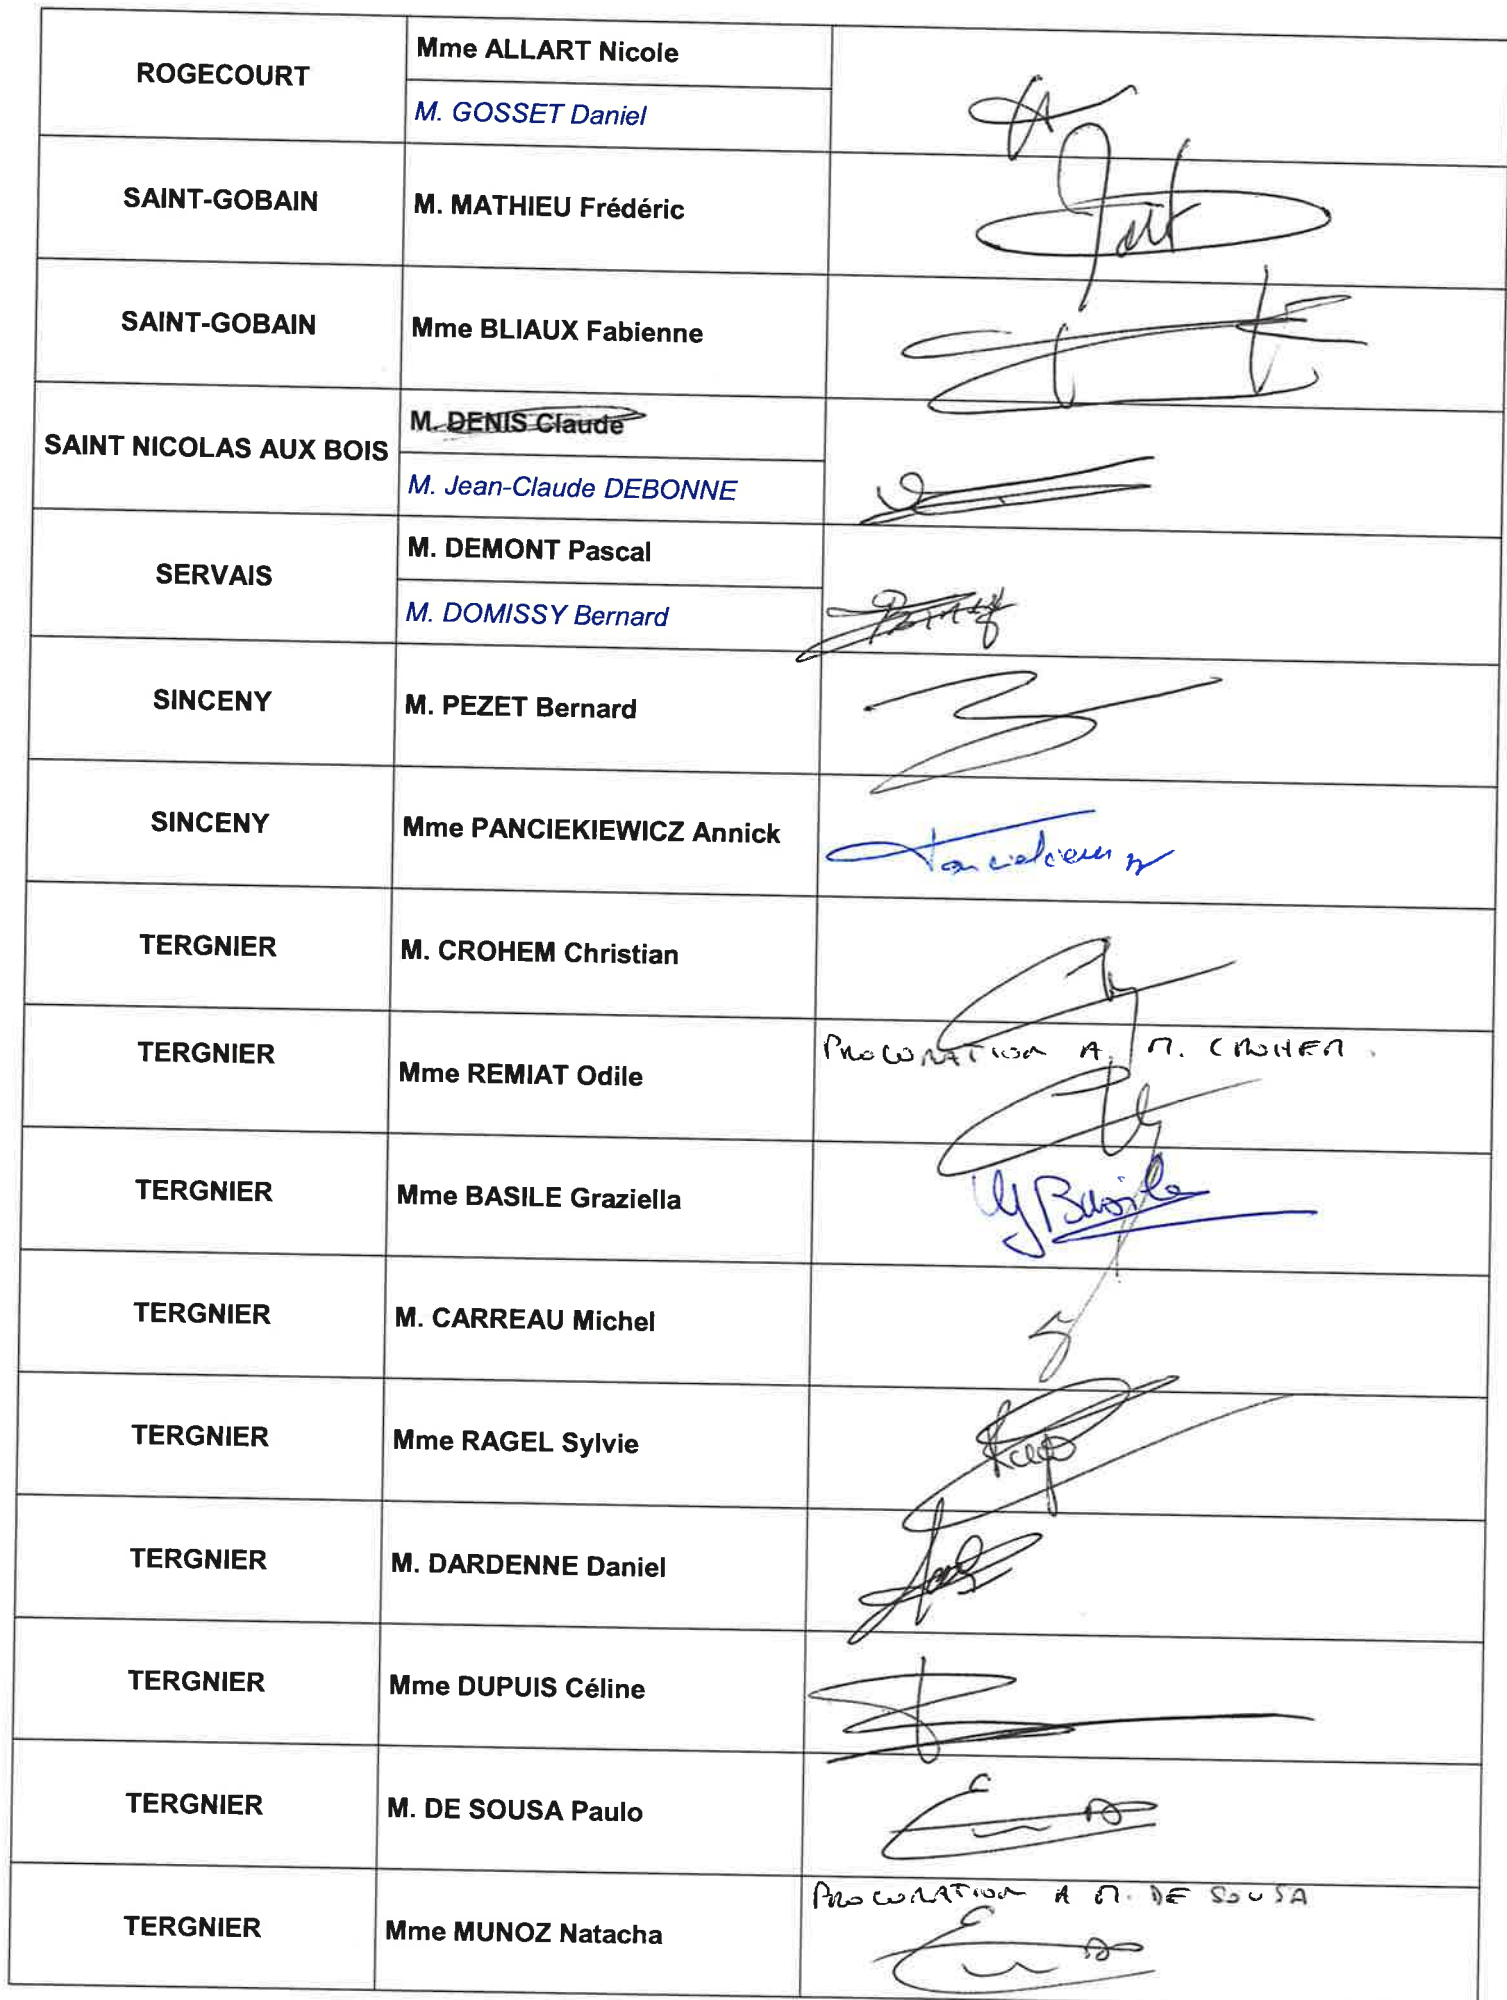 ROGECOURT
Mme ALLART Nicole
M. GOSSET Daniel
SAINT-GOBAIN
M. MATHIEU Frédéric
SAINT-GOBAIN
Mme BLIAUX Fabienne
SAINT NICOLAS AUX BOIS
M. DENIS Claude
M. Jean-Claude DEBONNE
SERVAIS
M. DEMONT Pascal
M. DOMISSY Bernard
SINCENY
M. PEZET Bernard
SINCENY
Mme PANCIEKIEWICZ Annick
TERGNIER
M. CROHEM Christian
TERGNIER
Mme REMIAT Odile
PROCURATION A M. CROHEM.
TERGNIER
Mme BASILE Graziella
G Basile
TERGNIER
M. CARREAU Michel
TERGNIER
Mme RAGEL Sylvie
TERGNIER
M. DARDENNE Daniel
TERGNIER
Mme DUPUIS Céline
TERGNIER
M. DE SOUSA Paulo
TERGNIER
Mme MUNOZ Natacha
PROCURATION A M. DE SOUSA